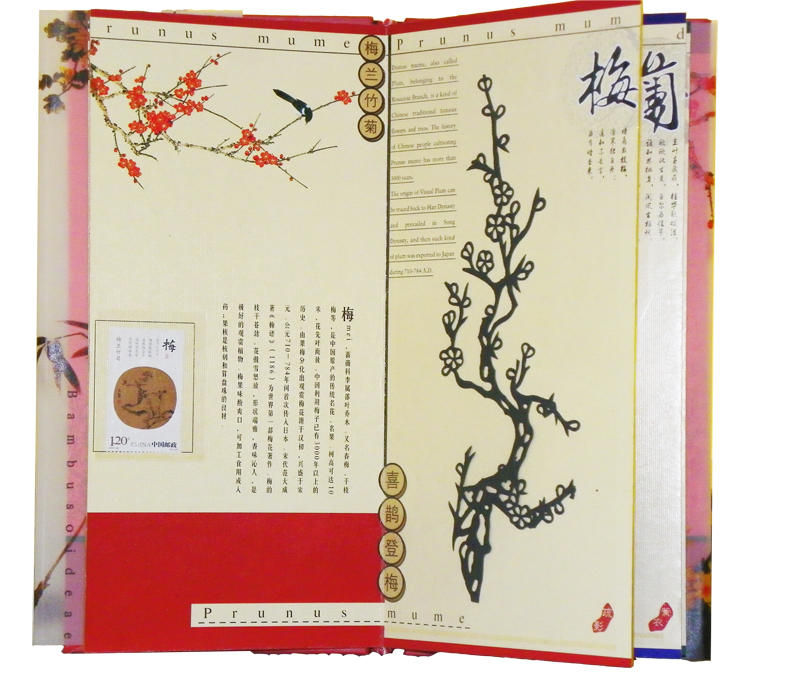 runus mume
Prunus mum
d
梅
兰
竹
菊
Prunus mume, also called
Plum, belonging to the
Rosaceae Branch, is a kind of
Chinese traditional famous
flowers and trees. The history
of Chinese people cultivating
Prunus mume has more than
3000 years.
The origin of Visual Plum can
be traced back to Han Dynasty
and prevailed in Song
Dynasty, and then such kind
of plum was exported to Japan
during 710-784 A.D.
梅
菊
梅mei，蔷薇科李属落叶乔木，又名春梅、干枝
梅等，是中国原产的传统名花、名果，树高可达10
米，花先叶而放。中国利用梅子已有3000年以上的
历史，由果梅分化出观赏梅花源于汉初，兴盛于宋
元，公元710－784年间首次传入日本，宋代范大成
著《梅谱》（1186）为世界第一部梅花著作。梅的
枝干苍劲，花傲雪怒放，形状端雅，香味沁人，是
极好的观赏植物，梅果味酸爽口，可加工食用或入
药；果核是核刻和算盘珠的良材。
梅
梅兰竹菊
1.20元
CHINA中国邮政
Bambusoideae
喜
鹊
登
梅
Prunus mume
疏影